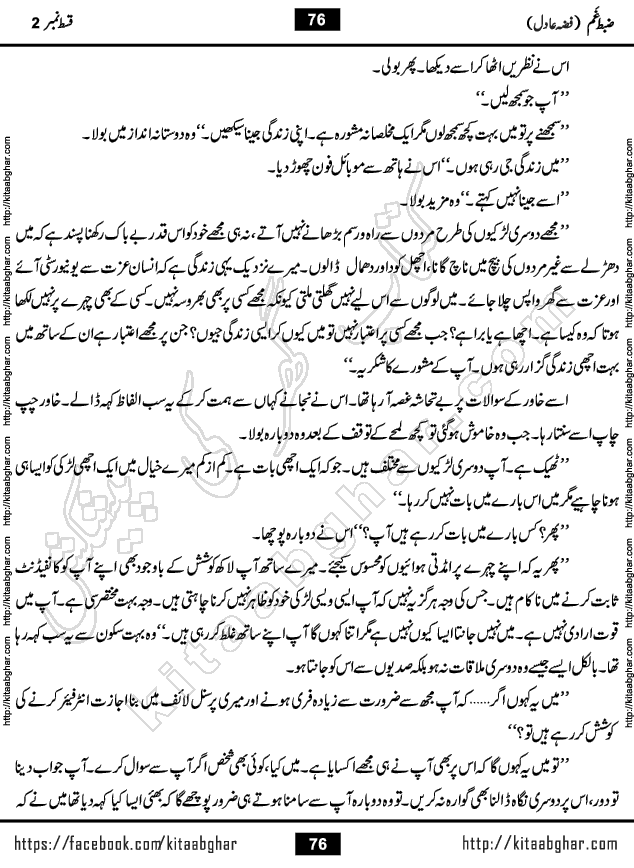 ضبطِ غم (فضہ عادل)
76
قسط نمبر 2
اس نے نظریں اٹھا کر اسے دیکھا۔ پھر بولی۔
’’آپ جو سمجھ لیں۔‘‘
’’سمجھنے پر تو میں بہت کچھ سمجھ لوں مگر ایک مخلصانہ مشورہ ہے۔ اپنی زندگی جینا سیکھیں۔‘‘ وہ دوستانہ انداز میں بولا۔
’’میں زندگی جی رہی ہوں۔‘‘ اس نے ہاتھ سے موبائل فون چھوڑ دیا۔
’’اسے جینا نہیں کہتے۔‘‘ وہ مزید بولا۔
’’مجھے دوسری لڑکیوں کی طرح مردوں سے راہ و رسم بڑھانے نہیں آتے، نہ ہی مجھے خود کو اس قدر بے باک رکھنا پسند ہے کہ میں
دھڑلے سے غیر مردوں کی بیچ میں ناچ گانا، اچھل کود اور دھمال ڈالوں۔ میرے نزدیک یہی زندگی ہے کہ انسان عزت سے یونیورسٹی آئے
اور عزت سے گھر واپس چلا جائے۔ میں لوگوں سے اس لیے نہیں گھلتی ملتی کیونکہ مجھے کسی پر بھی بھروسہ نہیں۔ کسی کے بھی چہرے پر نہیں لکھا
ہوتا کہ وہ کیسا ہے۔ اچھا ہے یا برا ہے؟ جب مجھے کسی پر اعتبار نہیں تو میں کیوں کر ایسی زندگی جیوں؟ جن پر مجھے اعتبار ہے ان کے ساتھ میں
بہت اچھی زندگی گزار رہی ہوں۔ آپ کے مشورے کا شکریہ۔‘‘
اسے خاور کے سوالات پر بے تحاشہ غصہ آ رہا تھا۔ اس نے نجانے کہاں سے ہمت کر کے یہ سب الفاظ کہہ ڈالے۔ خاور چپ
چاپ اسے سنتا رہا۔ جب وہ خاموش ہو گئی تو کچھ لمحے کے توقف کے بعد وہ دوبارہ بولا۔
’’ٹھیک ہے۔ آپ دوسری لڑکیوں سے مختلف ہیں۔ جو کہ ایک اچھی بات ہے۔ کم از کم میرے خیال میں ایک اچھی لڑکی کو ایسا ہی
ہونا چاہیے مگر میں اس بارے میں بات نہیں کر رہا۔‘‘
’’پھر؟ کس بارے میں بات کر رہے ہیں آپ؟‘‘ اس نے دوبارہ پوچھا۔
’’پھر یہ کہ اپنے چہرے پر اڈتی ہوائیوں کو محسوس کیجئے۔ میرے ساتھ آپ لاکھ کوشش کے باوجود بھی اپنے آپ کو کانفیڈنٹ
ثابت کرنے میں ناکام ہیں۔ جس کی وجہ ہرگز یہ نہیں کہ آپ ایسی ویسی لڑکی خود کو ظاہر نہیں کرنا چاہتی ہیں۔ وجہ بہت مختصر سی ہے۔ آپ میں
قوت ارادی نہیں ہے۔ میں نہیں جانتا ایسا کیوں نہیں ہے مگر اتنا کہوں گا آپ اپنے ساتھ غلط کر رہی ہیں۔‘‘ وہ بہت سکون سے یہ سب کہہ رہا
تھا۔ بالکل ایسے جیسے وہ دوسری ملاقات نہ ہو بلکہ صدیوں سے اس کو جانتا ہو۔
’’میں یہ کہوں اگر...... کہ آپ مجھ سے ضرورت سے زیادہ فری ہونے اور میری پرسنل لائف میں بنا اجازت انٹرفیئر کرنے کی
کوشش کر رہے ہیں تو؟‘‘
’’تو میں یہ کہوں گا کہ اس پر بھی آپ نے ہی مجھے اکسایا ہے۔ میں کیا، کوئی بھی شخص اگر آپ سے سوال کرے۔ آپ جواب دینا
تو دور، اس پر دوسری نگاہ ڈالنا بھی گوارہ نہ کریں۔ تو وہ دوبارہ آپ سے سامنا ہوتے ہی ضرور پوچھے گا کہ بھئی ایسا کیا کہہ دیا تھا میں نے کہ
http://kitaabghar.com http://kitaabghar.com http://kitaabghar.com http://kitaabghar.com http://kitaabghar.com http://kitaabghar.com
http://kitaabghar.com http://kitaabghar.com http://kitaabghar.com http://kitaabghar.com http://kitaabghar.com http://kitaabghar.com
کتاب گھر کی پیشکش
kitaabghar.com
https://facebook.com/kitaabghar
76
http://kitaabghar.com